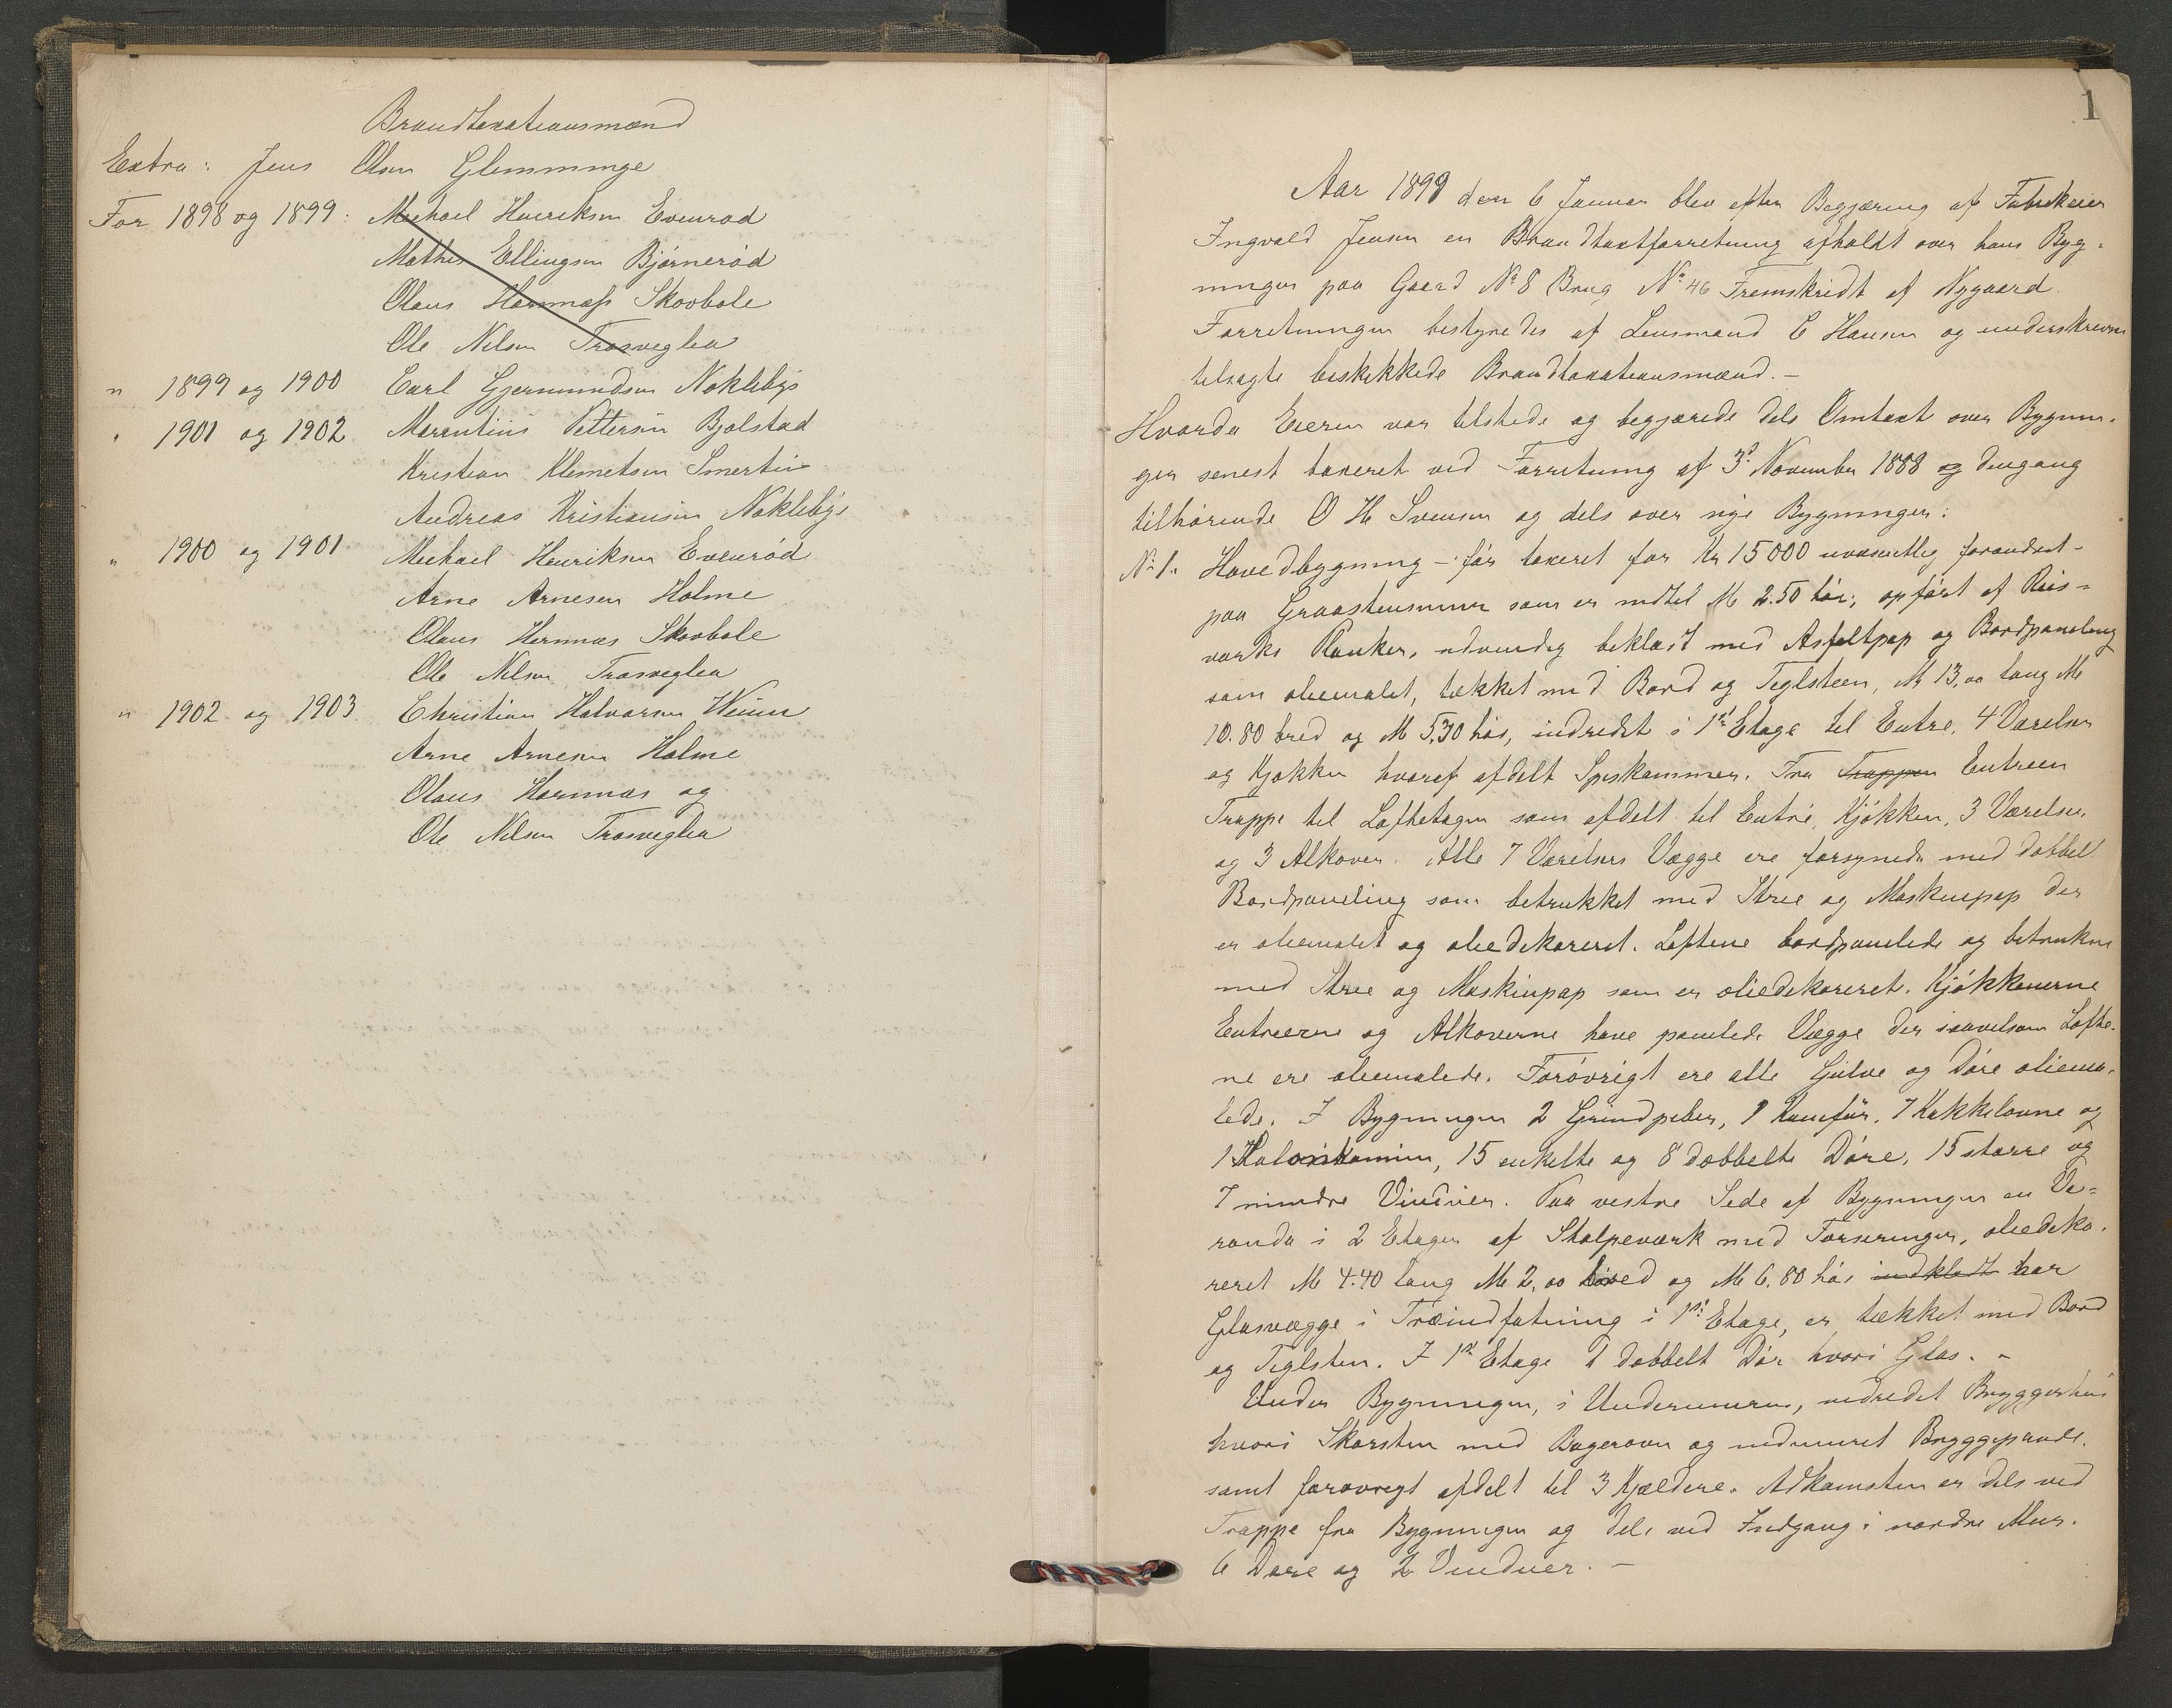 Brandtaxationsmænd
Extra: Jens Olsen Glemminge
For 1898 og 1899: Michael Henriksen Evenrød
Mathis Ellingsen Bjørnerød
Olaus Hermnæss Skovbøle
Ole Nilsen Trosveglia
" 1899 og 1900 Carl Gjermundsen Nøkleby's
" 1901 og 1902 Marentius Pettersen Bjølstad
Kristian Klemetsen Smertu
Andreas Kristiansen Nøkleby's
" 1900 og 1901 Michael Henriksen Evenrød
Arne Arnesen Holme
Olaus Hermnæs Skovbøle
Ole Nilsen Trosveglia
" 1902 og 1903 Christian Halvorsen
Arne Arnesen Holme
Olaus Hermnæs og
Ole Nilsen Trosveglia
1
Aar 1899 den 6 Januar blev efter Begjæring af Fabrikeier
Ingvald Jensen en Brandtaxtforretning afholdt over hans Byg-
ninger paa Gaard No 8 Brug No 46 Fremskridt af Nygaard.
Forretningen bestyredes af Lensmand C Hansen og underskrevne
tilsagte beskikkede Brandtaxationsmænd. –
Hvorda Eieren var tilstede og begjærede dels Omtaxt over Bygnin-
ger senest taxeret ved Forretning af 3d November 1888 og dengang
tilhørende O H Svensen og dels over nye Bygninger:
No 1. Hovedbygning – før taxeret for Kr 15000 uvæsentlig forandret –
paa Graastensmur som er indtil M 2.50 høi; opført af Reis-
værks Planker, udvendig beklædt med Asfaltpap og Bordpaneling
som oliemalet, tækket med Bord og Teglsteen, M 13,00 lang M
10.80 bred og M 5,30 høi, indredet i 1ste Etage til Entre, 4 Værelser
og Kjøkken hvoraf afdelt Spiskammer. Fra Trappen Entreen
Trappe til Loftetagen som afdelt til Entre, Kjøkken, 3 Værelser,
og 3 Alkover. Alle 7 Værelsers Vægge ere forsynede med dobbelt
Bordpaneling som betrukket med Strie og Maskinpap der
er oliemalet og oliedekoreret. Loftene bordpanelede og betrukne
med Strie og Maskinpap som er oliedekoreret. Kjøkkenerne
Entreerne og Alkoverne have panelede Vægge der saavelsom Lofte-
ne ere oliemalede. Forøvrigt ere alle Gulve og Døre oliema-
lede. I Bygningen 2 Grundpiber, 1 Komfür, 7 Kakkelovne og
1 Kolonkamin, 15 enkelte og 8 dobbelte Døre, 15 større og
7 mindre Vinduer. Paa vestre Side af Bygningen en Ve-
randa i 2 Etager af Stolpeværk med Forsiringer, oliedeko-
reret M 4.40 lang M 2,00 bred og M 6.80 høi indklædt har
Glasvægge i Træindfatning i 1ste Etage, er tækket med Bord
og Teglsten. I 1ste Etage 1 dobbelt Dør hvori Glas. –
Under Bygningen, i Undermuren, indredet Bryggerhus
hvori Skorsten med Bagerovn og indmuret Bryggepande,
samt forøvrigt afdelt til 3 Kjældere. Adkomsten er dels ved
Trappe fra Bygningen og dels ved Indgang i nordre Mur.
6 Døre og 2 Vinduer. –